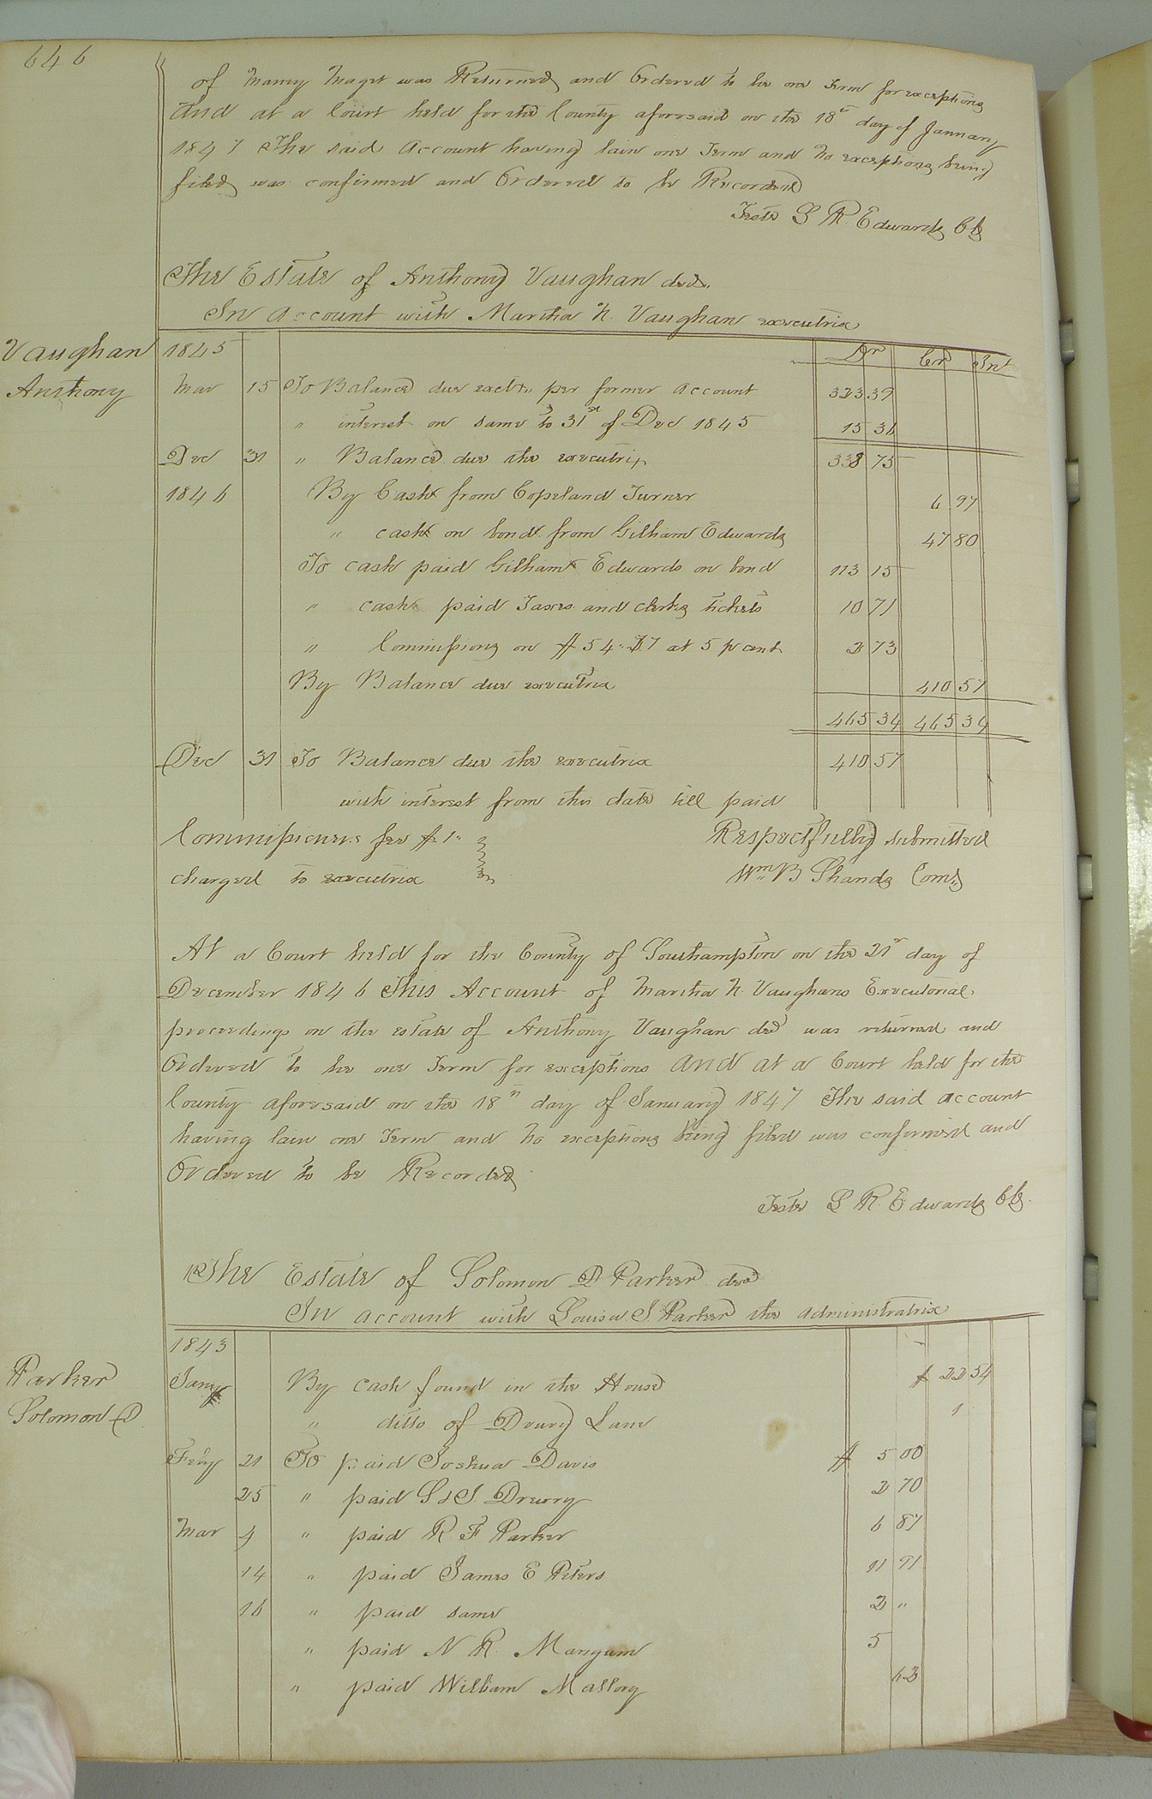 646
of Mancy Maget was Returned and Ordered to lie one Term for exceptions
And at a Court held for the County aforesaid on the 18th day of January
1847 The said Account having lain one Term and no exceptions being
filed was confirmed and Ordered to be Recorded
Teste L R Edwards Clk
The Estate of Anthony Vaughan decd.
In Account with Martha N. Vaughan executrix
Vaughan Anthony
1845 Dr Cr Int
Mar 15 To Balance due exctx per former account 323 39
" interest on same to 31st of Dec 1845 15 36
Dec 31 " Balance due the executrix 338 75
1846 By Cash from Copeland Turner 6 97
" cash on bond from Gilham Edwards 47 80
To cash paid Gilham Edwards on bond 113 15
" cash paid Taxes and clerks tickets 10 71
" Commissions on $54.77 at 5 pr cent 2 73
By Balance due executrix 410 57
465 34 465 34
Dec 31 To Balance due the executrix 410 57
with interest from this date till paid
Commissioners fee $1.
charged to executrix
Respectfully submitted
Wm B Shands Coms
At a Court held for the County of Southampton on the 21st day of
December 1846 This Account of Martha N. Vaughans Executorial
proceedings on the estate of Anthony Vaughan decd was returned and
Ordered to lie one Term for exceptions And at a Court held for the
County aforesaid on the 18th day of January 1847 The said account
having lain one Term and no exceptions being filed was confirmed and
Ordered to be Recorded
Teste L R Edwards Clk.
The Estate of Solomon D Parker decd
In account with Louisa S Parker the administratrix
Parker Solomon D
1843
Jany By cash found in the House $ 22 54
" ditto of Drury Lane 1
Feby 21 To paid Joshua Davis $ 5 00
25 " paid L & S Drewry 2 70
Mar 4 " paid R F Parker 6 87
14 " paid James E Peters 11 91
16 " paid same 2 "
" paid N R Mangum 5
" paid William Mallory 62